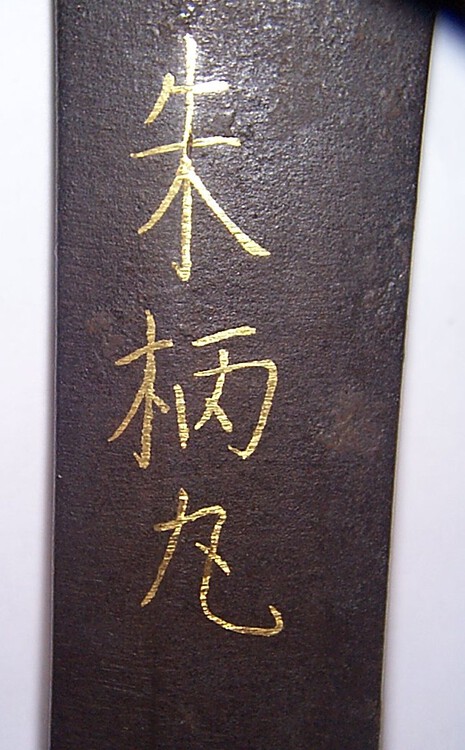 朱柄丸